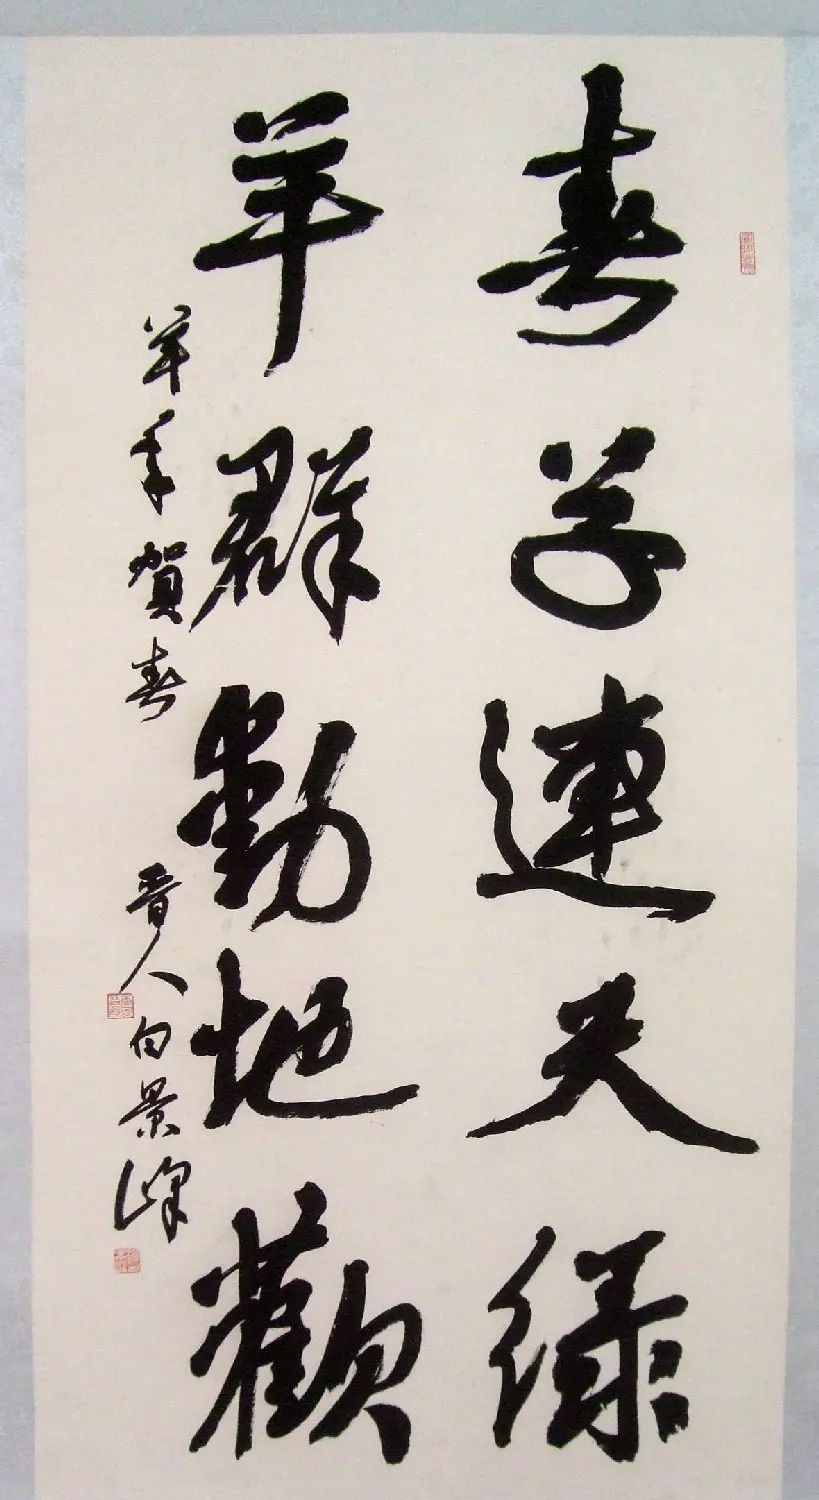 春草連天綠
羊群動地歡
羊年賀春 晉人白景峰